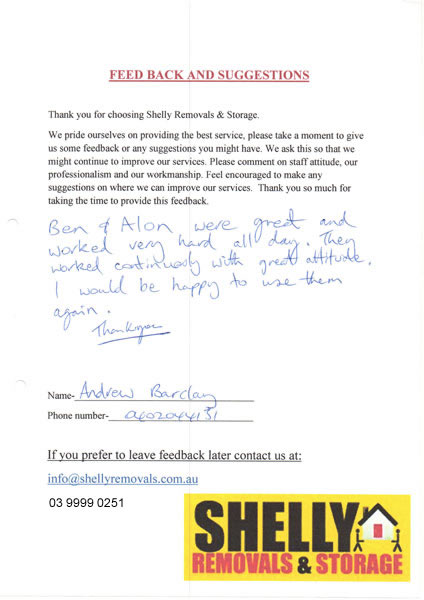 FEED BACK AND SUGGESTIONS
Thank you for choosing Shelly Removals & Storage.
We pride ourselves on providing the best service, please take a moment to give
us some feedback or any suggestions you might have. We ask this so that we
might continue to improve our services. Please comment on staff attitude, our
professionalism and our workmanship. Feel encouraged to make any
suggestions on where we can improve our services. Thank you so much for
taking the time to provide this feedback.
Ben & Alon were great and
worked very hard all day. They
worked continuously with great attitude.
I would be happy to use them
again.
Thankyou
Name- Andrew Barclay
Phone number- 0402044151
If you prefer to leave feedback later contact us at:
info@shellyremovals.com.au
03 9999 0251
SHELLY
REMOVALS & STORAGE